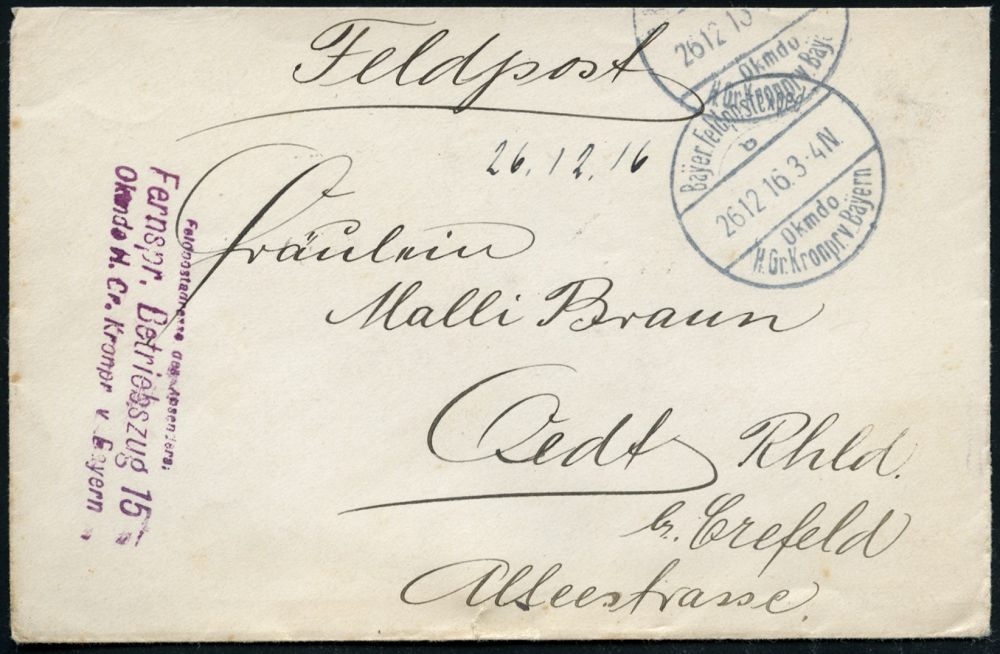 Feldpost
26.12.16
Fräulein
Malli Braun
Oedt Rhld.
b. Crefeld
Alleestrasse
2612 13
Okmdo
H.Gr.Kronpr.v.Baye
Bayer. Feldpostexped
a
2612 16.3-4N.
Okmdo
H.Gr.Kronpr.v.Bayern
Feldpostadresse des Absenders:
Fernspr. Betriebszug 15
Okmdo H. Gr. Kronpr v Bayern